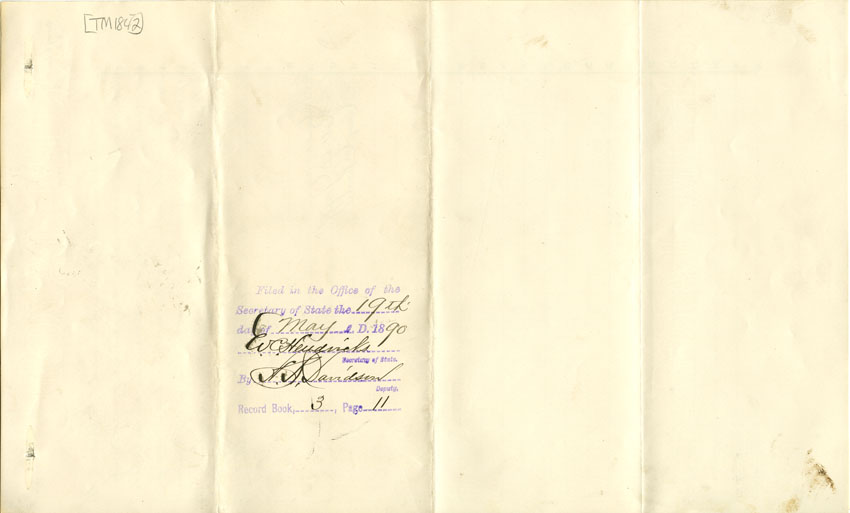 [TM1842]
Filed in the Office of the
Secretary of State the 19th
day of May A. D. 1890
E. C. Hendricks
Secretary of State.
By Davidson
Deputy.
Record Book, 3, Page 11